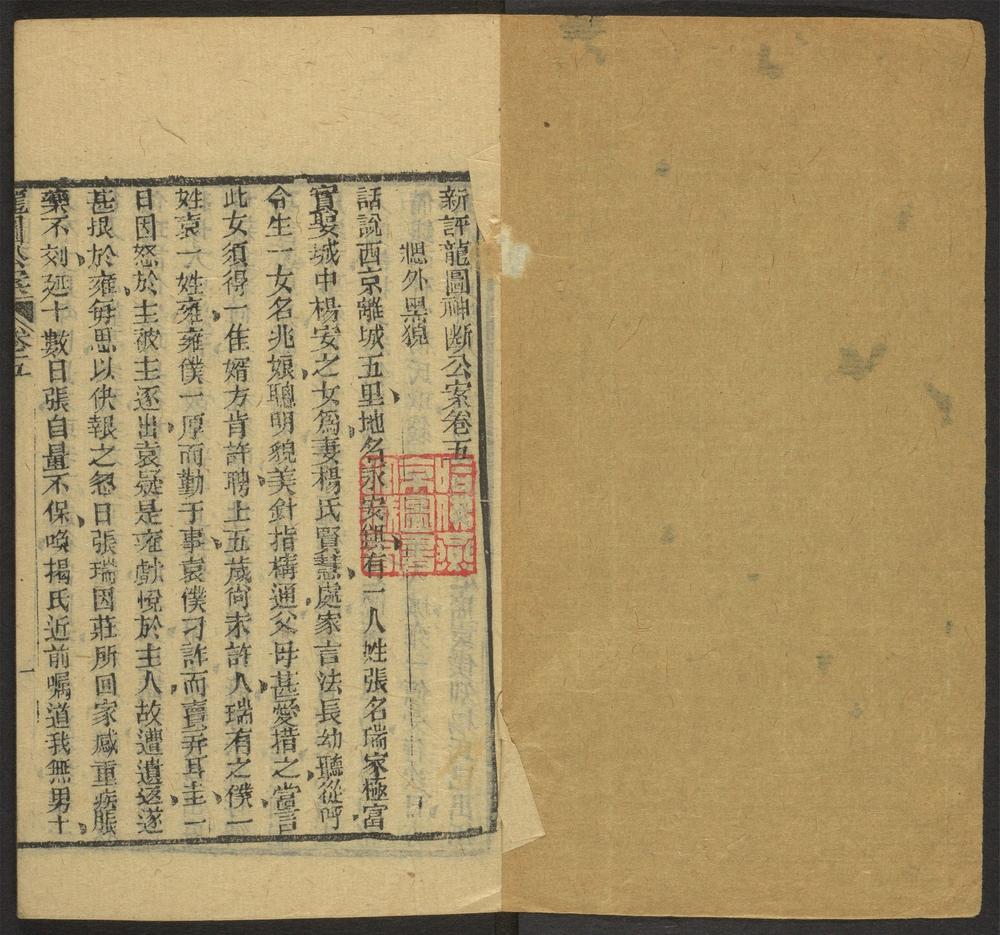 新評龍圖神斷公案卷五
牕外黑猿
話說西京離城五里地名永安鎮有一人姓張名瑞家極富
實娶城中楊安之女爲妻楊氏賢慧處家言法長幼聽從呼
令生一女名兆娘聰明貌美針指構通父母甚愛惜之當言
此女須得一佳婿方肯許聘十五歲尚未許人瑞有之僕一
姓袁一姓雍雍僕一厚而勤于事袁僕刁詐而賣弄耳主一
日因怒於主被主逐出袁疑是雍獻悅於主人故遭遺逐遂
甚恨於雍每思以快報之忽日張瑞因莊所回家感重疾服
藥不効延十數日張自量不保喚揭氏近前囑道我無男子
龍圖公案 卷五
一
哈佛燕